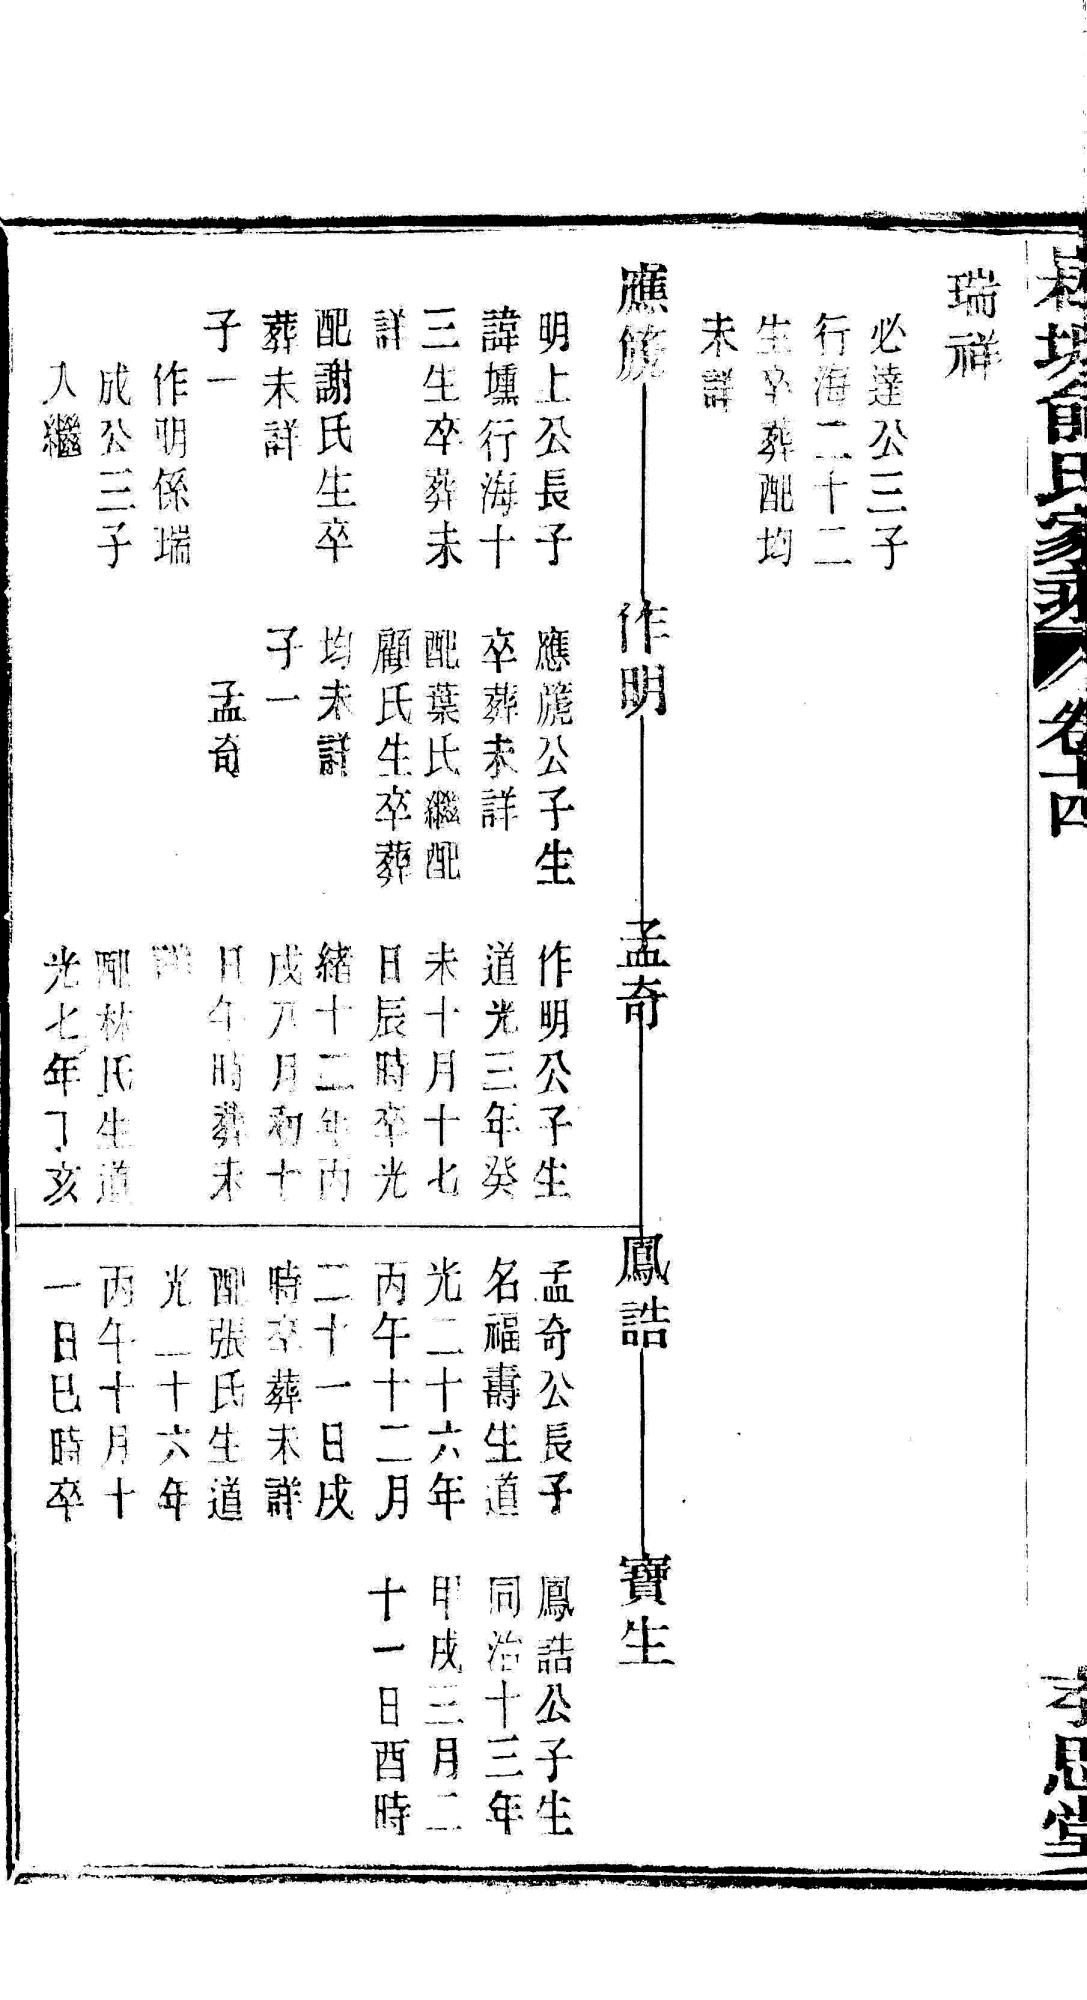 俞氏家乘 卷十四
孝思堂
瑞祥
必達公三子
行海二十二
生卒葬配均
未詳
應箎
明上公長子
諱壎行海十
三生卒葬未
詳
配謝氏生卒
葬未詳
子一
作明係瑞
成公三子
入繼
作明
應箎公子生
卒葬未詳
配葉氏繼配
顧氏生卒葬
均未詳
子一
孟奇
孟奇
作明公子生
道光三年癸
未十月十七
日辰時卒光
緒十二年丙
戌八月初十
日午時葬未
詳
配林氏生道
光七年丁亥
鳳誥
孟奇公長子
名福壽生道
光二十六年
丙午十二月
二十一日戌
時卒葬未詳
配張氏生道
光二十六年
丙午十月十
一日巳時卒
寶生
鳳誥公子生
同治十三年
甲戌三月二
十一日酉時